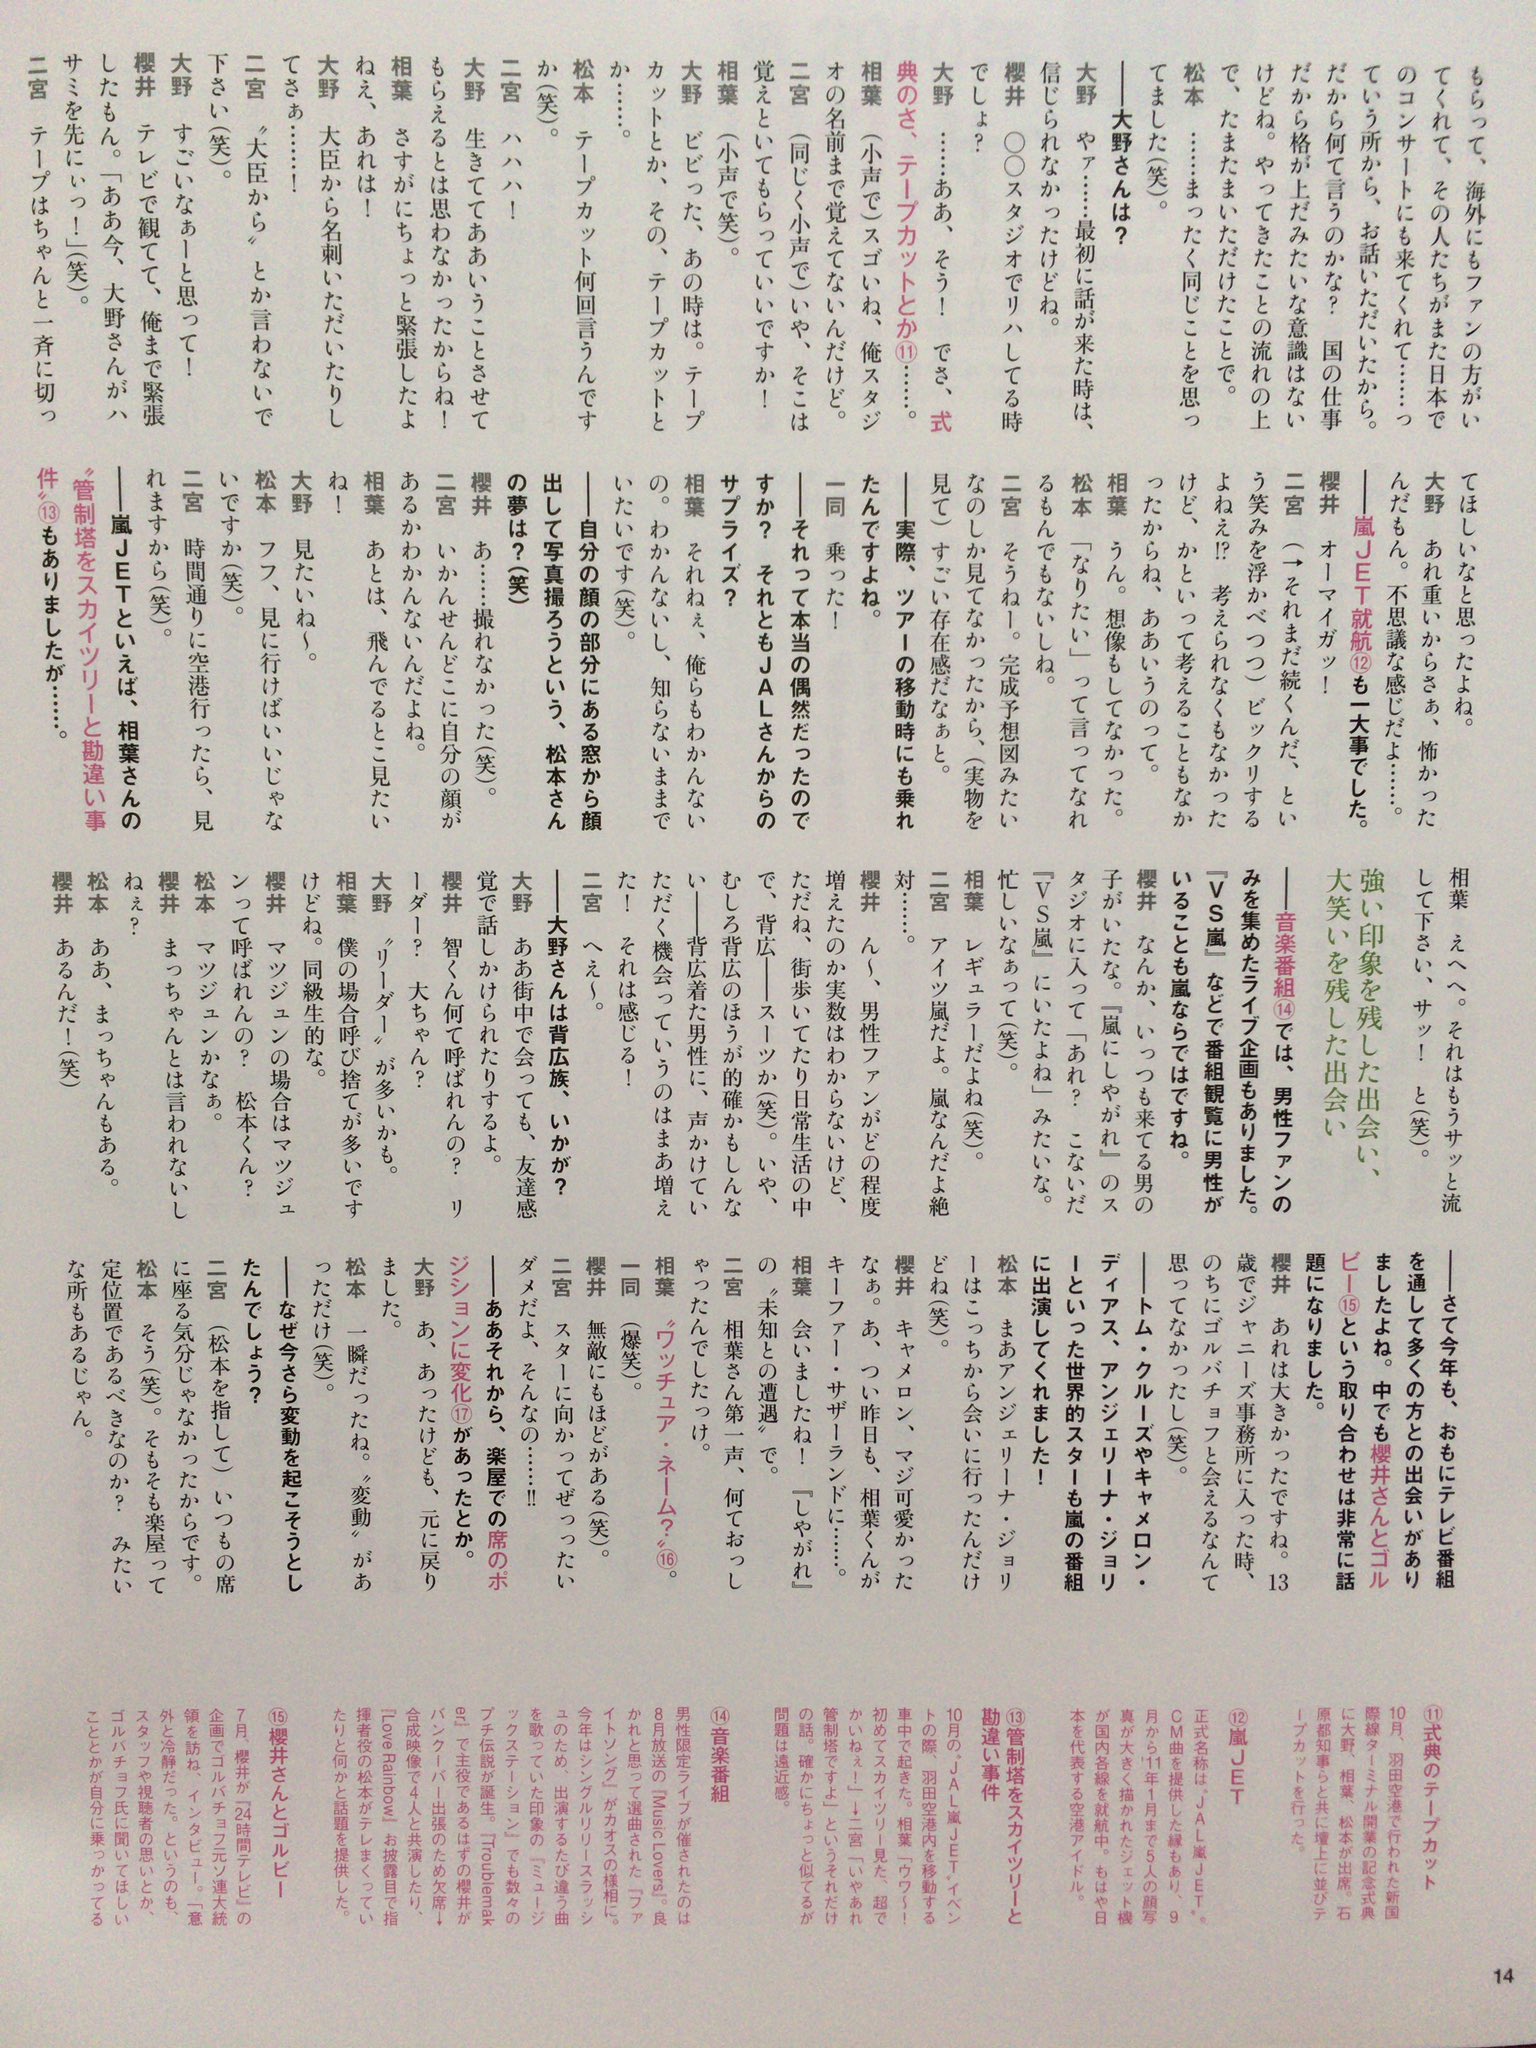 もらって、海外にもファンの方がい
てくれて、その人たちがまた日本で
のコンサートにも来てくれて……っ
ていう所から、お話いただいたから。
だから何て言うのかな?　国の仕事
だから格が上だみたいな意識はない
けどね。やってきたことの流れの上
で、たまたまいただけたことで。
松本　……まったく同じことを思っ
てました(笑)。
――大野さんは?
大野　やァ……最初に話が来た時は、
信じられなかったけどね。
櫻井　〇〇スタジオでリハしてる時
でしょ?
大野　……ああ、そう!　でさ、式
典のさ、テープカットとか⑪……。
相葉　(小声で)スゴいね、俺スタジ
オの名前まで覚えてないんだけど。
二宮　(同じく小声で)いや、そこは
覚えといてもらっていいですか!
相葉　(小声で笑)。
大野　ビビった、あの時は。テープ
カットとか、その、テープカットと
か……。
松本　テープカット何回言うんです
か(笑)。
二宮　ハハハ!
大野　生きててああいうことさせて
もらえるとは思わなかったからね!
相葉　さすがにちょっと緊張したよ
ねえ、あれは!
大野　大臣から名刺いただいたりし
てさぁ……!
二宮　〝大臣から〟とか言わないで
下さい(笑)。
大野　すごいなぁーと思って!
櫻井　テレビで観てて、俺まで緊張
したもん。「ああ今、大野さんがハ
サミを先にぃっ!」(笑)。
二宮　テープはちゃんと一斉に切っ
てほしいなと思ったよね。
大野　あれ重いからさぁ、怖かった
んだもん。不思議な感じだよ……。
――嵐JET就航⑫も一大事でした。
櫻井　オーマイガッ!
二宮　(→それまだ続くんだ、とい
う笑みを浮かべつつ)ビックリする
よねえ!?　考えられなくもなかった
けど、かといって考えることもなか
ったからね、ああいうのって。
相葉　うん。想像もしてなかった。
松本　「なりたい」って言ってなれ
るもんでもないしね。
二宮　そうねー。完成予想図みたい
なのしか見てなかったから、(実物を
見て)すごい存在感だなぁと。
――実際、ツアーの移動時にも乗れ
たんですよね。
一同　乗った!
――それって本当の偶然だったので
すか?　それともJALさんからの
サプライズ?
相葉　それねぇ、俺らもわかんない
の。わかんないし、知らないままで
いたいです(笑)。
――自分の顔の部分にある窓から顔
出して写真撮ろうという、松本さん
の夢は?(笑)
櫻井　あ……撮れなかった(笑)。
二宮　いかんせんどこに自分の顔が
あるかわかんないんだよね。
相葉　あとは、飛んでるとこ見たい
ね!
大野　見たいね〜。
松本　フフ、見に行けばいいじゃな
いですか(笑)。
二宮　時間通りに空港行ったら、見
れますから(笑)。
――嵐JETといえば、相葉さんの
〝管制塔をスカイツリーと勘違い事
件〟⑬もありましたが……。
相葉　えへへ。それはもうサッと流
して下さい、サッ!　と(笑)。
強い印象を残した出会い、
大笑いを残した出会い
――音楽番組⑭では、男性ファンの
みを集めたライブ企画もありました。
『VS嵐』などで番組観覧に男性が
いることも嵐ならではですね。
櫻井　なんか、いっつも来てる男の
子がいたな。『嵐にしやがれ』のス
タジオに入って「あれ?　こないだ
『VS嵐』にいたよね」みたいな。
忙しいなぁって(笑)。
相葉　レギュラーだよね(笑)。
二宮　アイツ嵐だよ。嵐なんだよ絶
対……。
櫻井　ん〜、男性ファンがどの程度
増えたのか実数はわからないけど、
ただね、街歩いてたり日常生活の中
で、背広――スーツか(笑)。いや、
むしろ背広のほうが的確かもしんな
い――背広着た男性に、声かけてい
ただく機会っていうのはまあ増え
た!　それは感じる!
二宮　へえ〜。
――大野さんは背広族、いかが?
大野　ああ街中で会っても、友達感
覚で話しかけられたりするよ。
櫻井　智くん何て呼ばれんの?　リ
ーダー?　大ちゃん?
大野　〝リーダー〟が多いかも。
相葉　僕の場合呼び捨てが多いです
けどね。同級生的な。
櫻井　マツジュンの場合はマツジュ
ンって呼ばれんの?　松本くん?
松本　マツジュンかなぁ。
櫻井　まっちゃんとは言われないし
ねぇ?
松本　ああ、まっちゃんもある。
櫻井　あるんだ!(笑)
――さて今年も、おもにテレビ番組
を通して多くの方との出会いがあり
ましたよね。中でも櫻井さんとゴル
ビー⑮という取り合わせは非常に話
題になりました。
櫻井　あれは大きかったですね。13
歳でジャニーズ事務所に入った時、
のちにゴルバチョフと会えるなんて
思ってなかったし(笑)。
――トム・クルーズやキャメロン・
ディアス、アンジェリーナ・ジョリ
ーといった世界的スターも嵐の番組
に出演してくれました!
松本　まあアンジェリーナ・ジョリ
ーはこっちから会いに行ったんだけ
どね(笑)。
櫻井　キャメロン、マジ可愛かった
なぁ。あ、つい昨日も、相葉くんが
キーファー・サザーランドに……。
相葉　会いましたね!　『しやがれ』
の〝未知との遭遇〟で。
二宮　相葉さん第一声、何ておっし
ゃったんでしたっけ。
相葉　〝ワッチュア・ネーム?〟⑯。
一同　(爆笑)。
櫻井　無敵にもほどがある(笑)。
二宮　スターに向かってぜったい
ダメだよ、そんなの……!!
――ああそれから、楽屋での席のポ
ジションに変化⑰があったとか。
大野　あ、あったけども、元に戻り
ました。
松本　一瞬だったね。〝変動〟があ
っただけ(笑)。
――なぜ今さら変動を起こそうとし
たんでしょう?
二宮　(松本を指して)いつもの席
に座る気分じゃなかったからです。
松本　そう(笑)。そもそも楽屋って
定位置であるべきなのか?　みたい
な所もあるじゃん。
⑪式典のテープカット
10月、羽田空港で行われた新国
際線ターミナル開業の記念式典
に大野、相葉、松本が出席。石
原都知事らと共に壇上に並びテ
ープカットを行った。
⑫嵐JET
正式名称は〝JAL嵐JET〟。
CM曲を提供した縁もあり、9
月から'11年1月まで5人の顔写
真が大きく描かれたジェット機
が国内各線を就航中。もはや日
本を代表する空港アイドル。
⑬管制塔をスカイツリーと
勘違い事件
10月の〝JAL嵐JET〟イベン
トの際、羽田空港内を移動する
車中で起きた。相葉「ウワ〜!
初めてスカイツリー見た、超で
かいねぇ!」→二宮「いやあれ
管制塔ですよ」というそれだけ
の話。確かにちょっと似てるが
問題は遠近感。
⑭音楽番組
男性限定ライブが催されたのは
8月放送の『Music Lovers』。良
かれと思って選曲された『ファ
イトソング』がカオスの様相に。
今年はシングルリリースラッシ
ュのため、出演するたび違う曲
を歌っていた印象の『ミュージ
ックステーション』でも数々の
プチ伝説が誕生。『Troublemak
er』で主役であるはずの櫻井が
バンクーバー出張のため欠席→
合成映像で4人と共演したり、
『Love Rainbow』お披露目で指
揮者役の松本がテレまくってい
たりと何かと話題を提供した。
⑮櫻井さんとゴルビー
7月、櫻井が『24時間テレビ』の
企画でゴルバチョフ元ソ連大統
領を訪ね、インタビュー。「意
外と冷静だった。というのも、
スタッフや視聴者の思いとか、
ゴルバチョフ氏に聞いてほしい
こととかが自分に乗っかってる
14